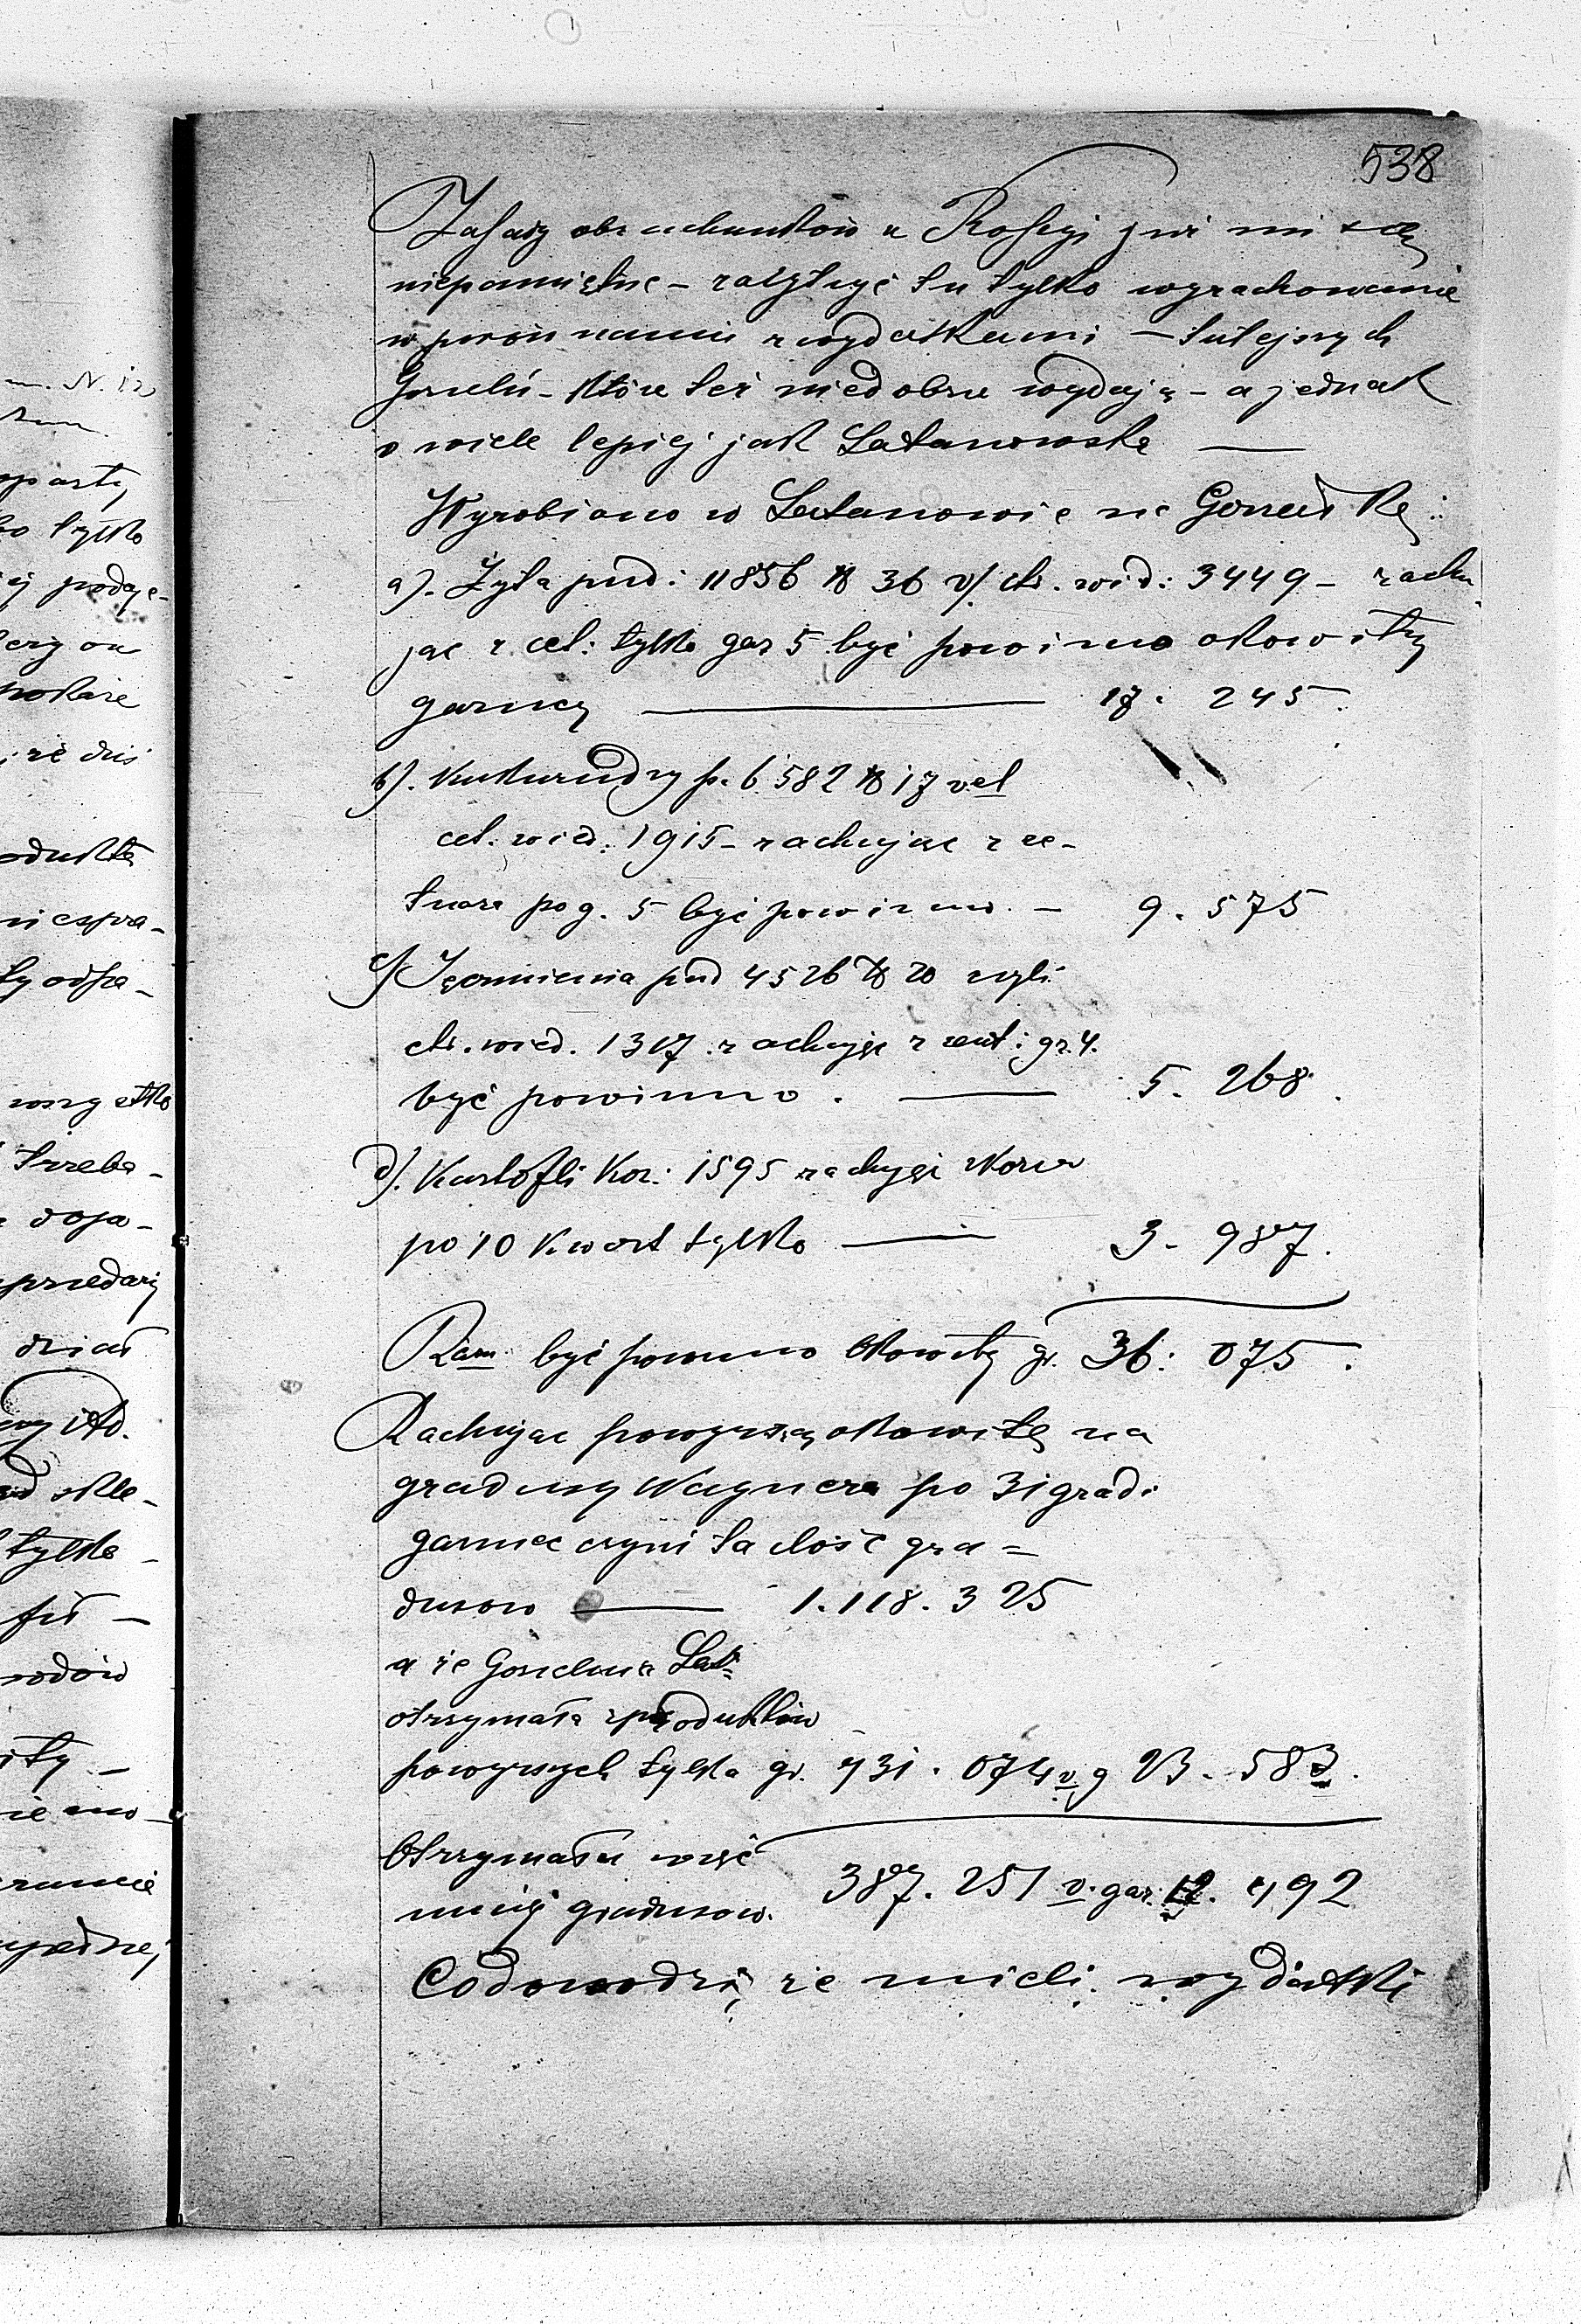 538
Zasady obrachunków w Rossyi już mi są
niepamiętne – załączyć tu tylko wyrachowanie
w porównaniu z wydatkami – tutejszych
Gorzelń – które też niedobrze wydają – a jednak
o wiele lepiej jak Satanowska —
Wyrobiono w Satanowie na Gorzałkę:
a). Żyta pud: 11856 ℔ 36 v/ ct. wied: 3449 – rachu
jąc z cet: tylko gar 5 być powinno okowity
garncy — 17. 245.
b). Kukurudzy p. 6.582 ℔ 17 vel
cet. wied: 1915 – rachując z ce–
tnara po g. 5 być powinno. — 9. 575
c) Jęczmienia pud 4526 ℔ 20 czyli
ct. wied. 1317. rachując z cent: gr. 4.
być powinno. — 5. 268.
d). Kartofli Kor: 1595 rachując Korzec
po 10 kwart tylko — 3. 987.
Razem być powinno Okowity g. 36. 075.
Rachując powyższą okowitę na
gradusy Wagnera po 31 grad:
garniec czyni ta ilość gra=
dusow — 1.118.325
a że Gorzelnia Sat:
otrzymała z produktów
powyższych tylko gr. 731. 074 v. g 23. 583.
Otrzymała więc
mniej gradusow. 387. 251 v. gar: 12. 492
Co dowodzi, że mieli wydatki
mpartej
bo tylko
podaje–
że dziś
oduktu
niespra–
ty odpa–
wszystko
trzeba–
dopa–
dział
itd.
tylko –